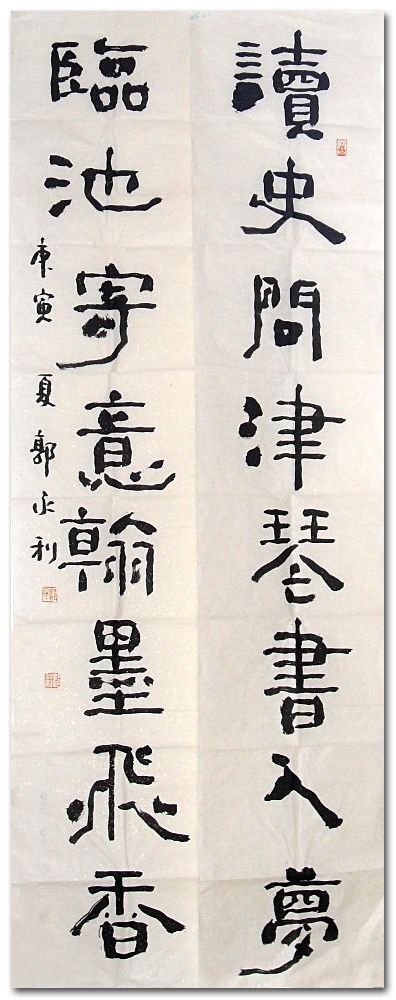 讀史問津琴書入夢
臨池寄意翰墨飛香
庚寅夏郭永利